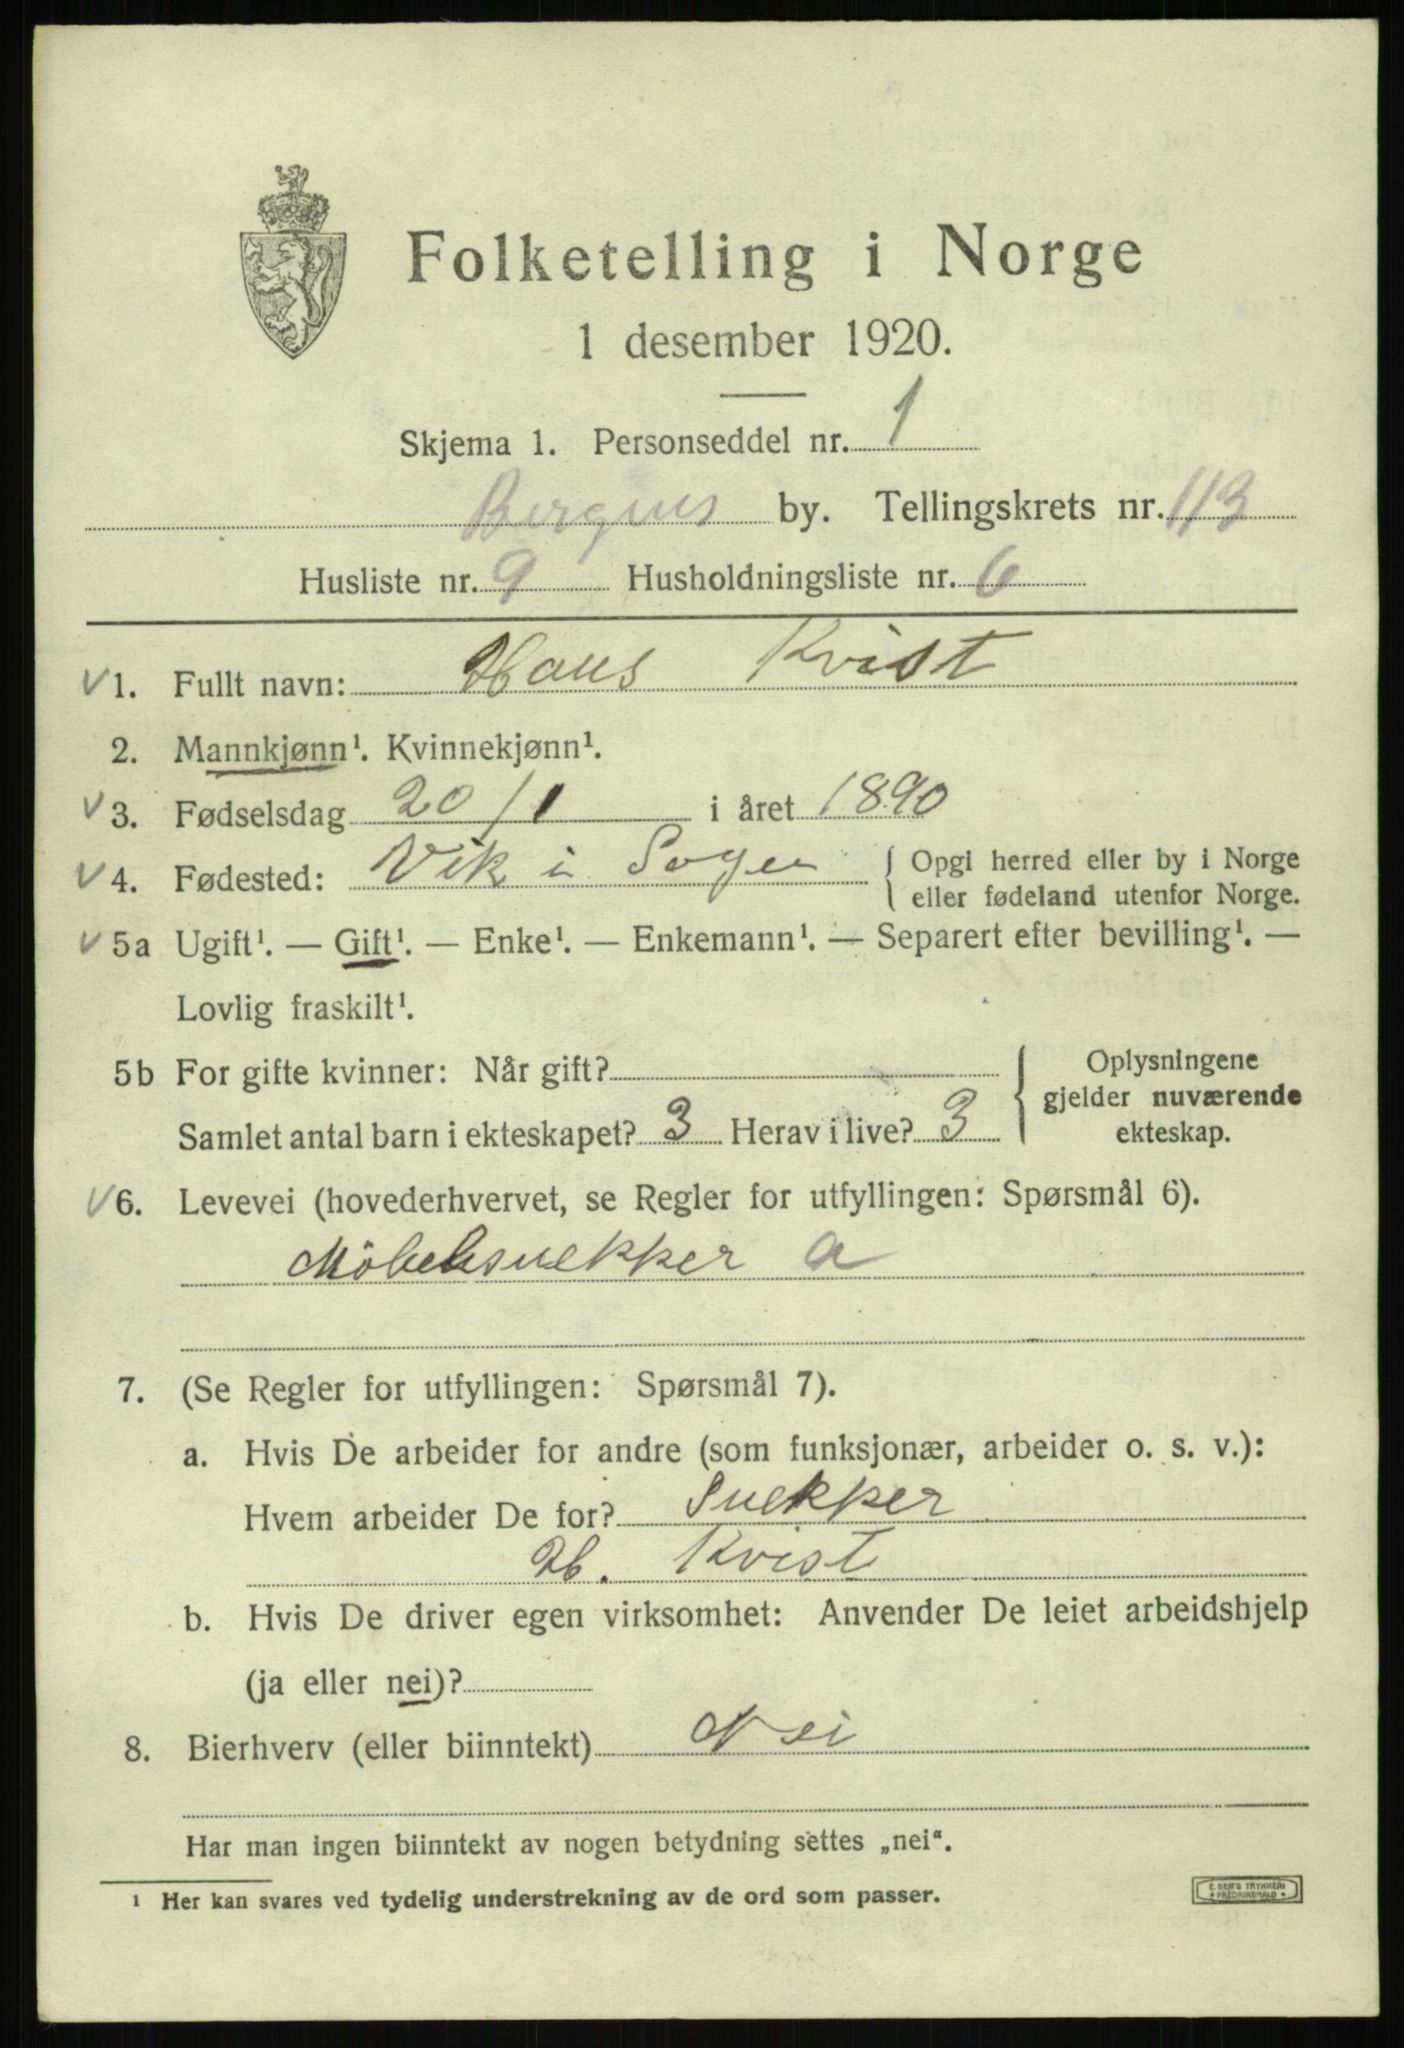 Folketelling i Norge
1 desember 1920.
Skjema 1. Personseddel nr. 1
Bergens by. Tellingskrets nr. 113
Husliste nr. 9 Husholdningsliste nr. 6
√ 1. Fullt navn: Hans Kvist
2. Mannkjønn¹. Kvinnekjønn¹.
√ 3. Fødselsdag 20/1 i året 1890
√ 4. Fødested: Vik i Sogn { Opgi herred eller by i Norge
eller fødeland utenfor Norge.
√ 5a Ugift¹. — Gift¹. — Enke¹. — Enkemann¹. — Separert efter bevilling¹. —
Lovlig fraskilt¹.
5b For gifte kvinner: Når gift? } Oplysningene
gjelder nuværende
Samlet antal barn i ekteskapet? 3 Herav i live? 3 ekteskap.
√ 6. Levevei (hovederhvervet, se Regler for utfyllingen: Spørsmål 6).
Möbelsnekker a
7. (Se Regler for utfyllingen: Spørsmål 7).
a. Hvis De arbeider for andre (som funksjonær, arbeider o. s. v.):
Hvem arbeider De for? Snekker
H. Kvist
b. Hvis De driver egen virksomhet: Anvender De leiet arbeidshjelp
(ja eller nei)?
8. Bierhverv (eller biinntekt) Nei
Har man ingen biinntekt av nogen betydning settes „nei“.
¹ Her kan svares ved tydelig understrekning av de ord som passer.
E. SEM'S TRYKKERI
FREDRIKSHALD